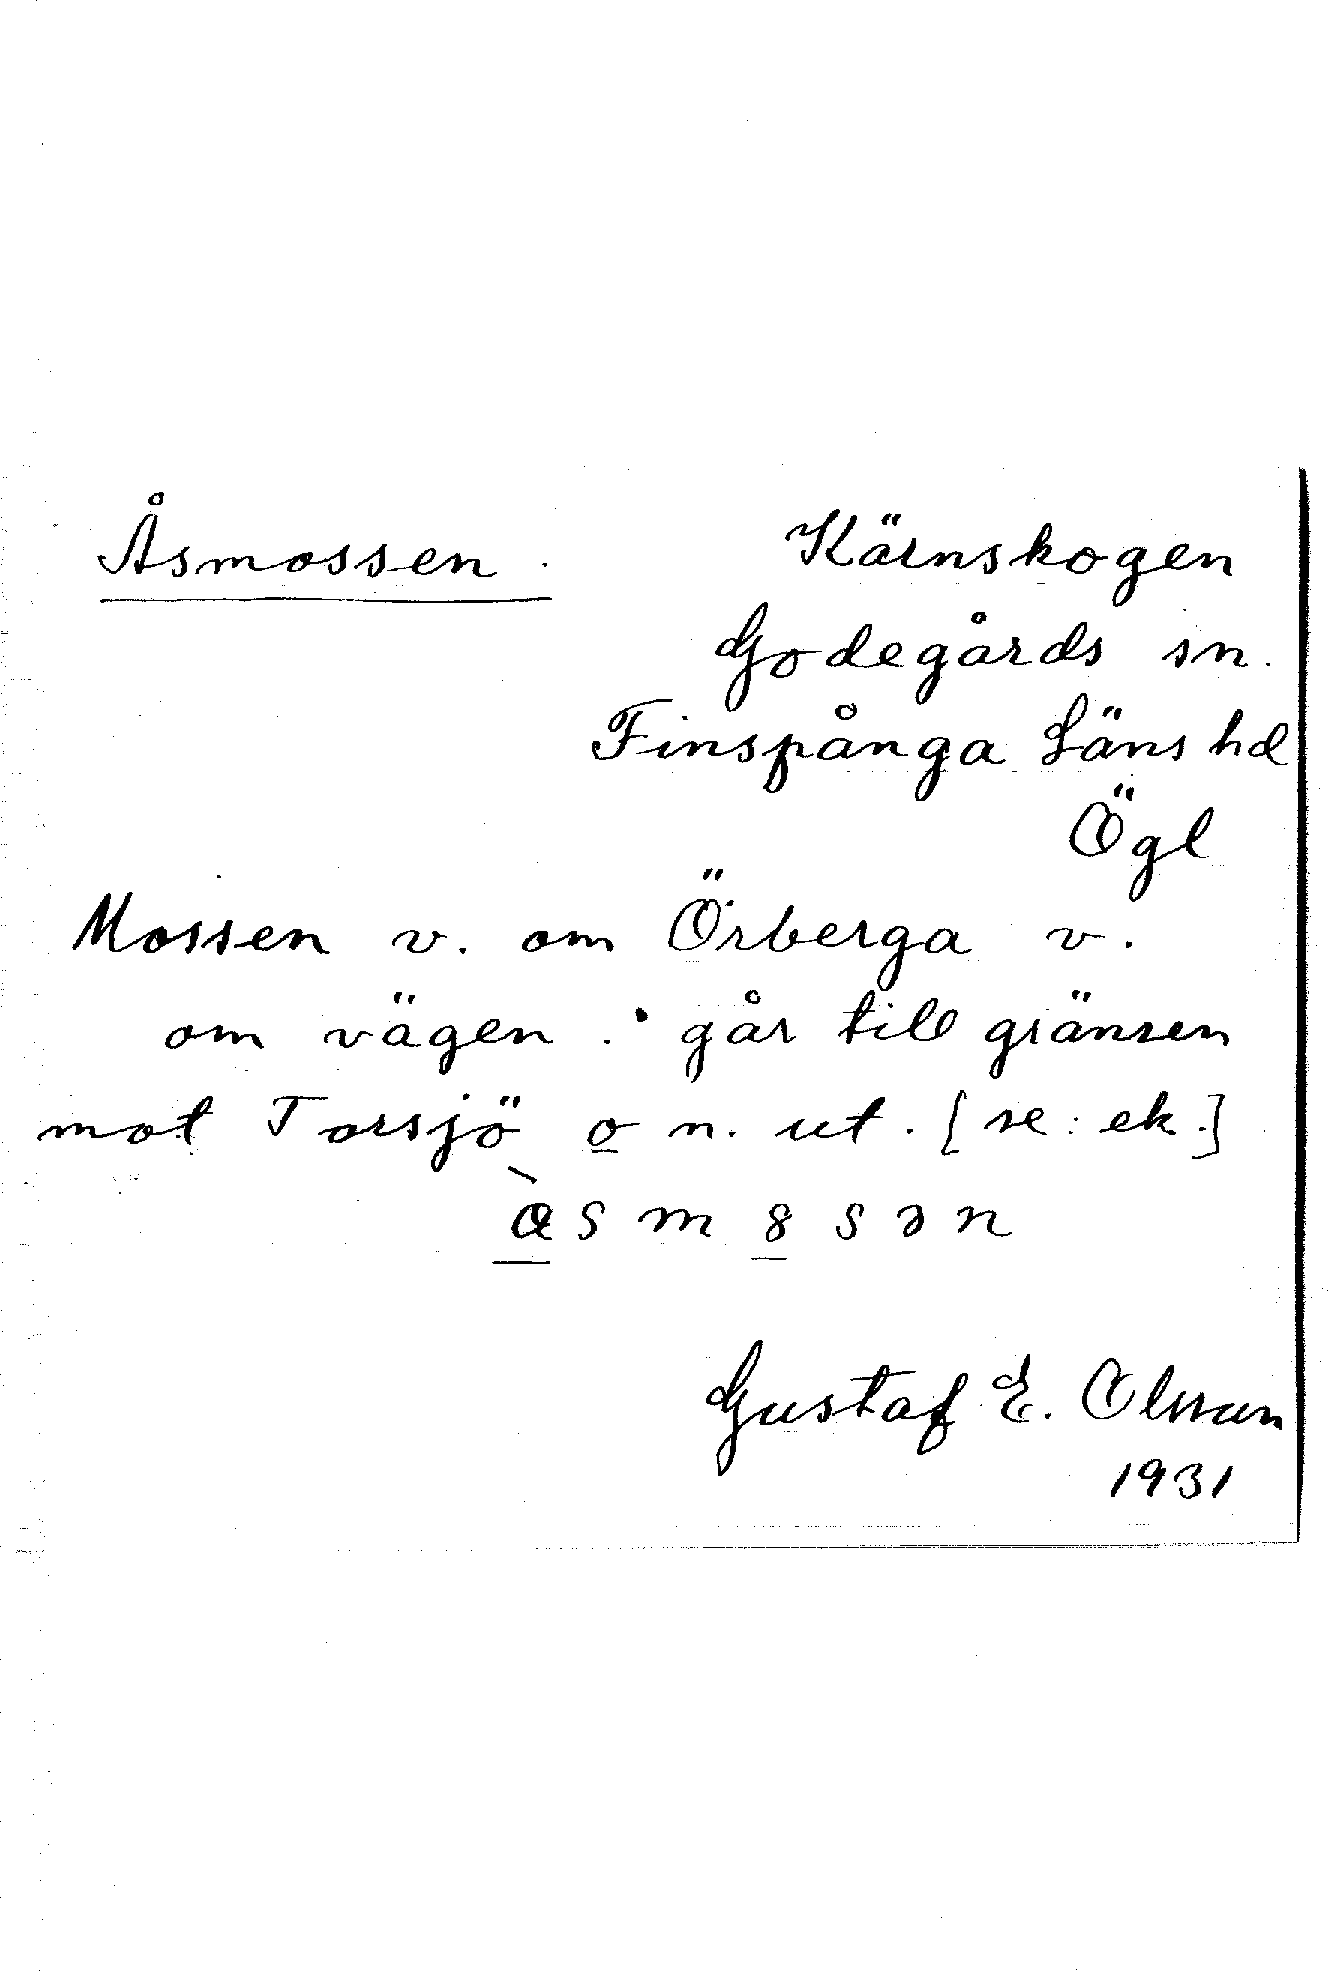 Åsmossen.
Kärnskogen
Godegårds sn.
Finspånga Läns hd
Ögl
Mossen v. om Örberga v.
om vägen. går till gränsen
mot Torsjö o n. ut. [se: ek.]
Gustaf E. Olsson
1931